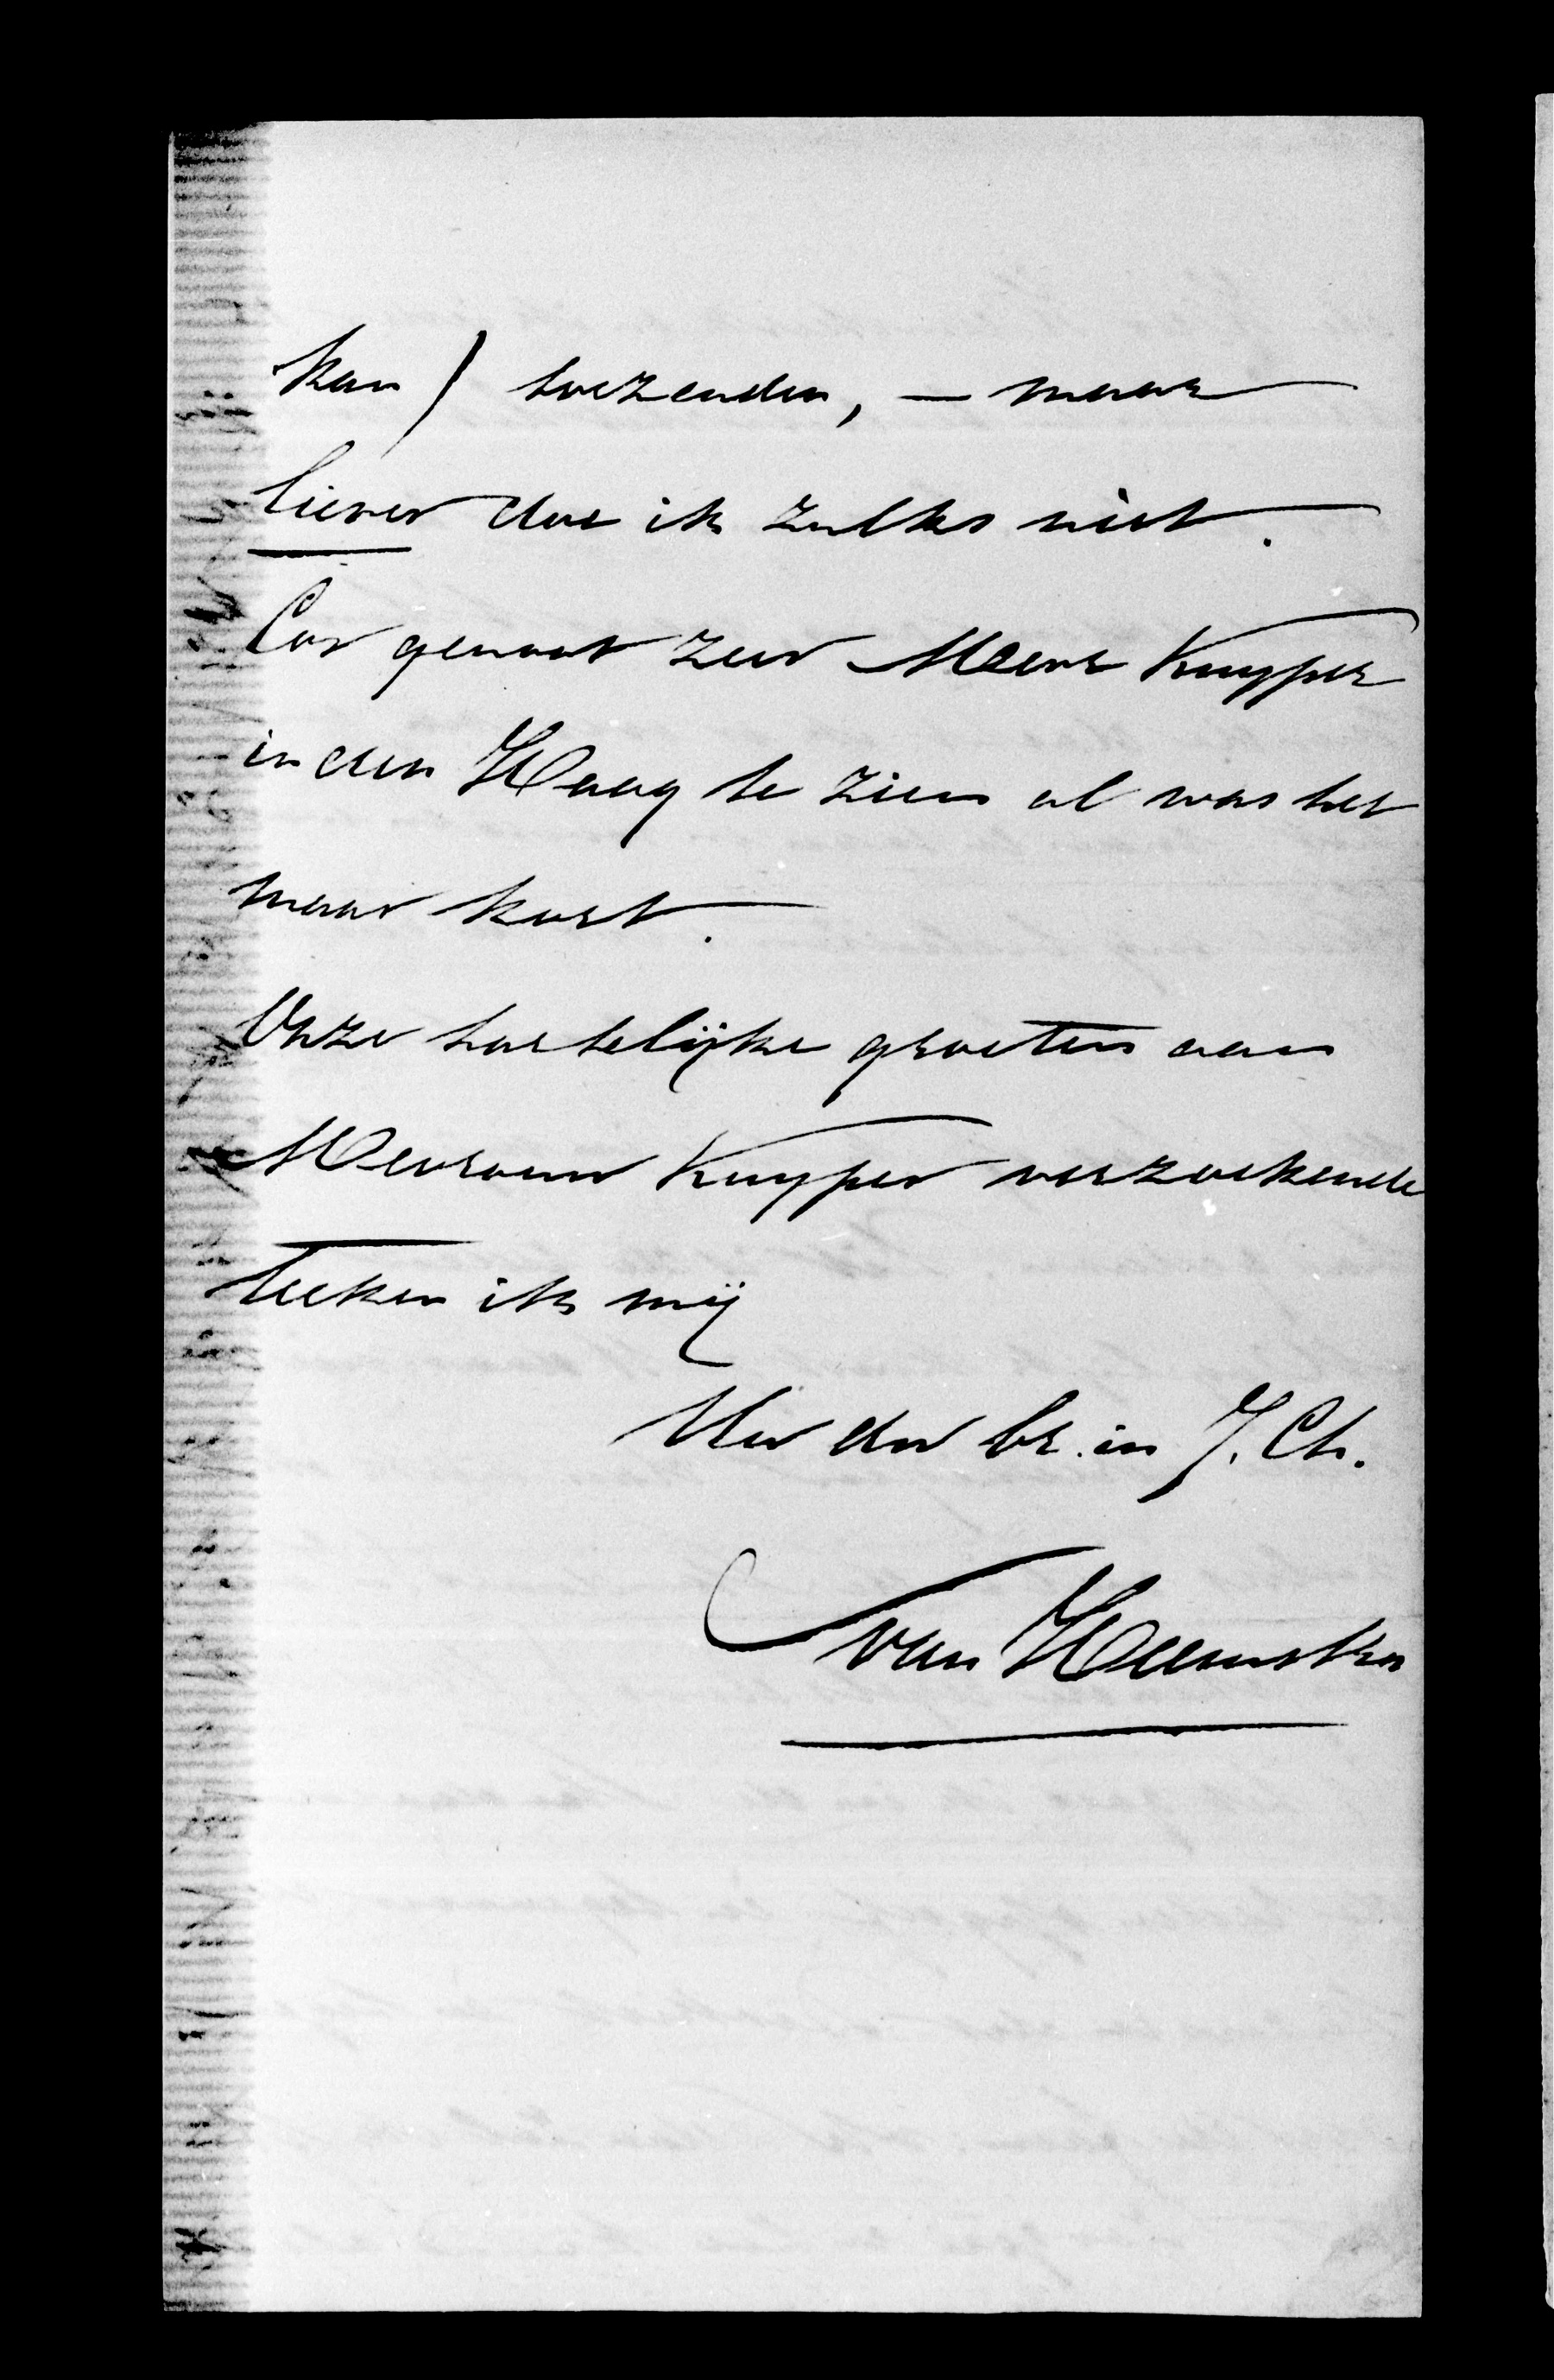 kan) toezenden, — maar
liever doe ik zulks niet.
Cor genoot zeer Mevr Kuyper
in den Haag te zien al was het
maar kort.
Onze hartelijke groeten aan
Mevrouw Kuyper verzoekende
teeken ik mij
Uw dw br. in J. Ch.
van Heemstra